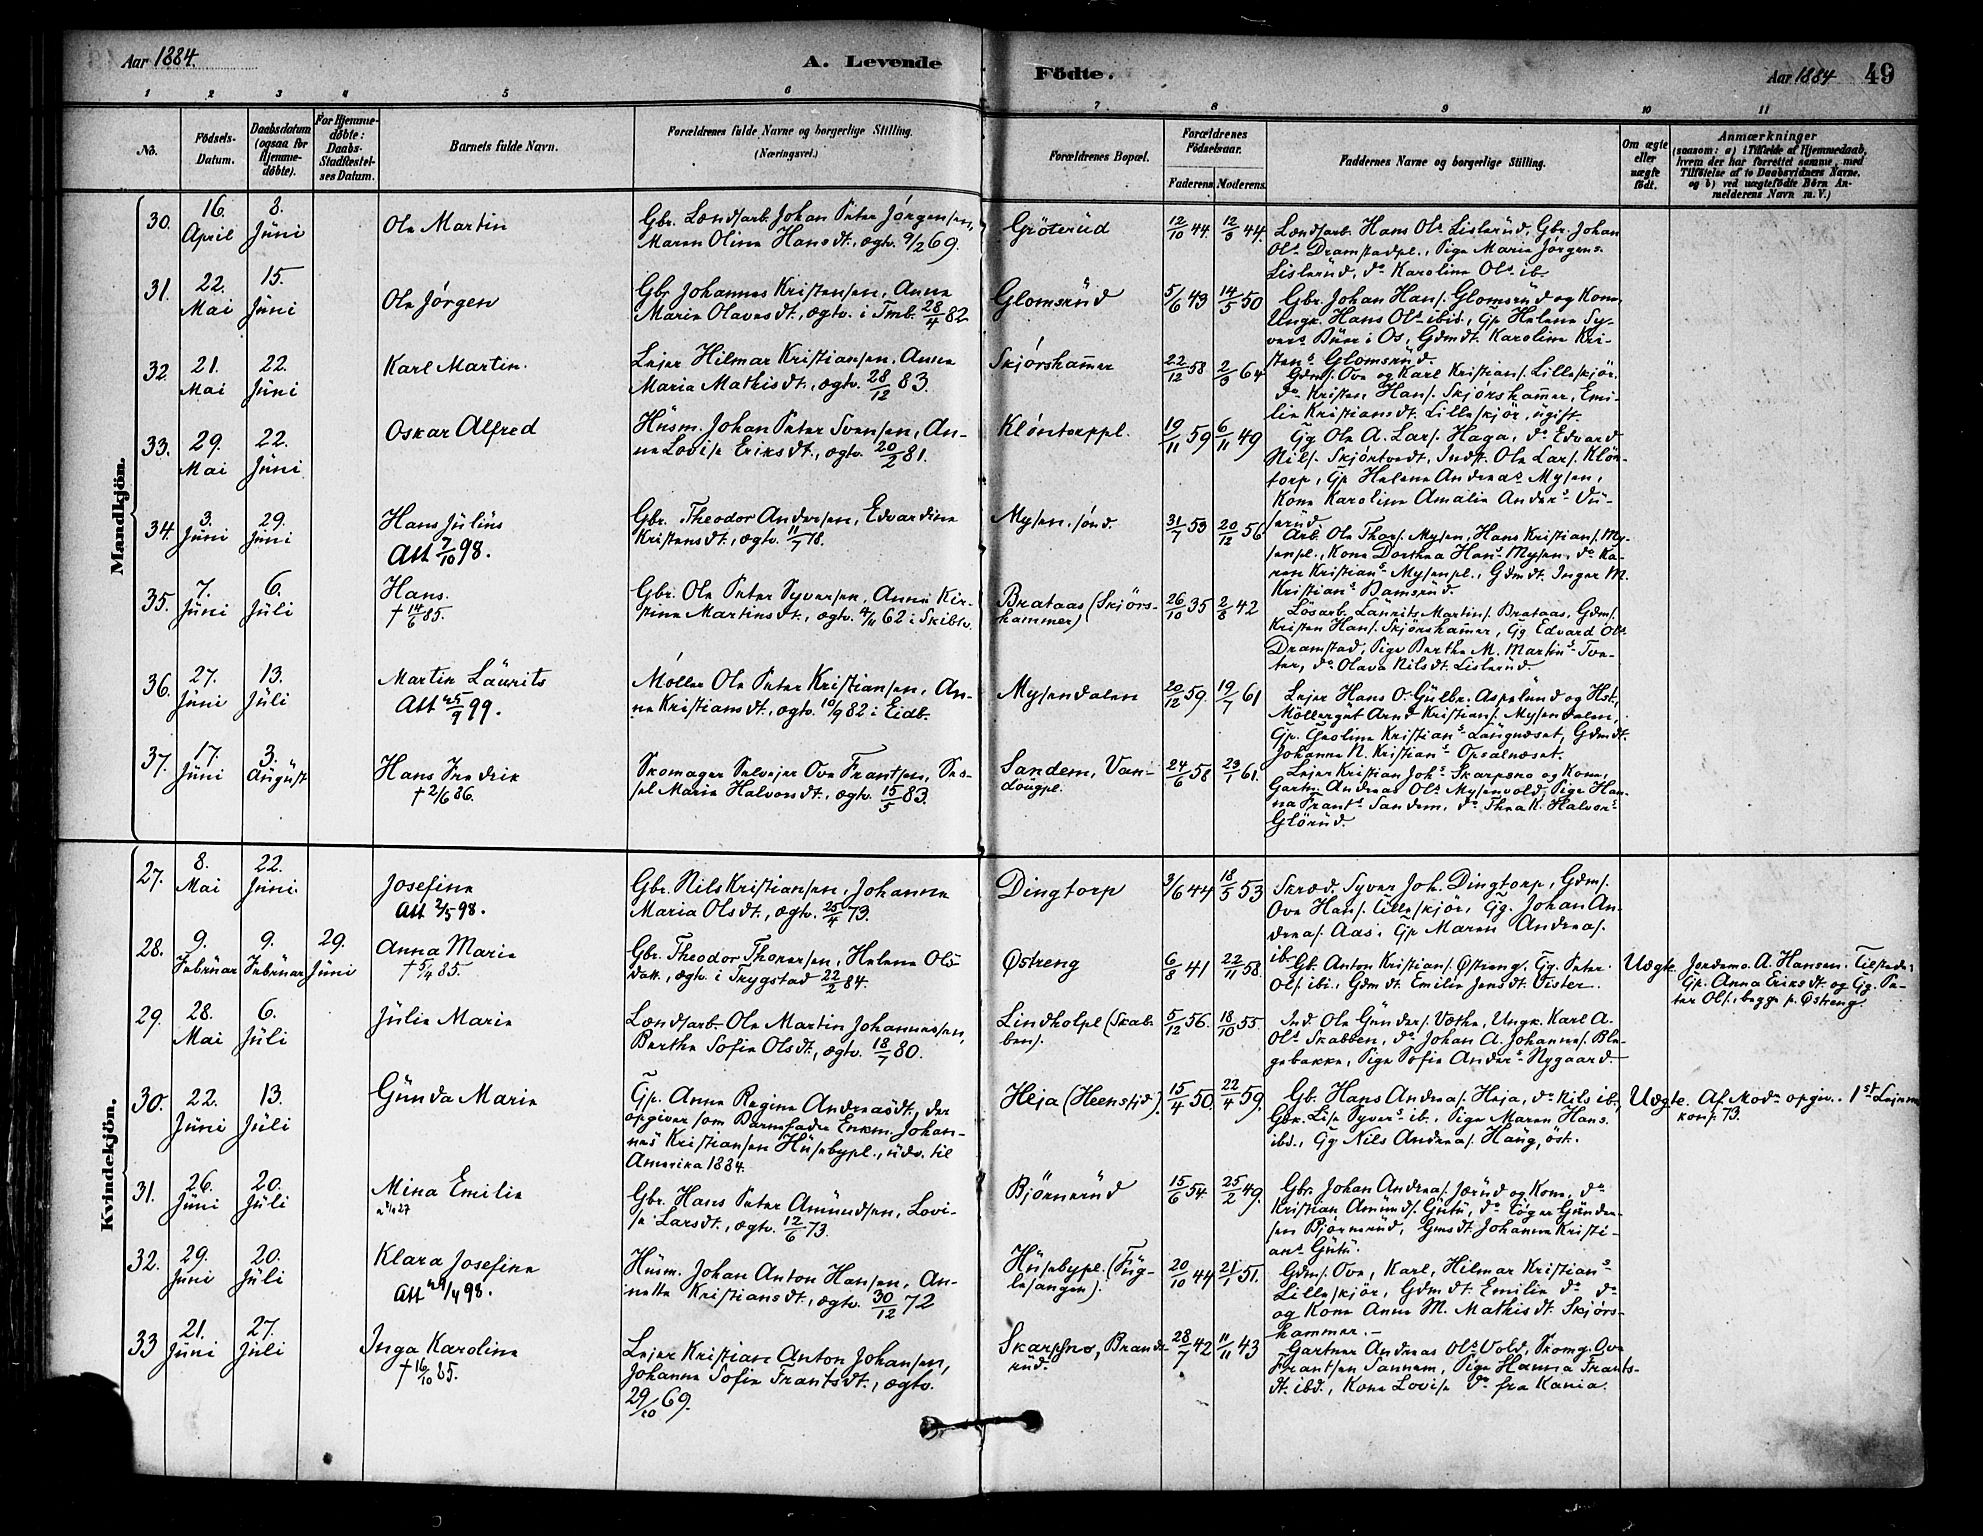 Aar 1884.
A. Levende
Födte.
Aar 1884
49
1 2 3 4 5 6 7 8 9 10 11
No.
Födsels-
Datum.
Daabsdatum
(ogsaa for
Hjemme-
døbte).
For Hjemme-
døbte:
Daabs-
Stadfæstel-
ses Datum.
Barnets fulde Navn.
Forældrenes fulde Navne og borgerlige Stilling.
(Næringsvei.)
Forældrenes Bopæl.
Forældrenes
Födselsaar.
Faderens Moderens
Faddernes Navne og borgerlige Stilling.
Om ægte
eller
uægte
født.
Anmærkninger
(saasom: a) i Tilfælde af Hjemmedaab,
hvem der har forrettet samme, med
Tilföielse af to Daabsvidners Navne.
og b) ved uægtefödte Börn An-
melderens Navn m. V.)
Mandkjön.
30.
16.
April
8.
Jüni
Ole Martin
Gbr. Landsarb. Johan Peter Jørgensen,
Maren Oline Hansdt., ægtv. 9/2 69.
Gröterüd
12/10 44.
12/3 44.
Landsarb. Hans Ols. Lislerüd, Gbr. Johan
Ols. Dramstadpl., Pige Marie Jørgens.
Lislerüd, do Karoline Ols. ib.
31.
22.
Mai
15.
Jüni
Ole Jørgen
Gbr. Johannes Kristensen, Anne
Marie Olavesdt., ægtv. i Tmb. 28/4 82
Glomsrüd
5/6 43
14/5 50
Gbr. Johan Hans. Glomsrüd og Kone,
Ungk. Hans Ols. ibid., Gp Helene Sy-
vers. Büer i Os, Gdmdt. Karoline Kri-
stens. Glomsrüd.
32.
21.
Mai
22.
Jüni
Karl Martin.
Lejer Hilmar Kristiansen, Anne
Maria Mathisdt., ægtv. 28/12 83.
Skjørshamer
22/12 58
2/3 64
Gdms. Ove og Karl Kristians. Lilleskjör.
do Kristen Hans. Skjørshamer, Emi-
lie Kristiansdt. Lilleskjör, ügift
33.
29.
Mai
22.
Jüni
Oskar Alfred
Hüsm. Johan Peter Svensen, An-
ne Lovise Eriksdt., ægtv. 20/2 81.
Kløntorppl.
19/11 59
6/11 49
Gg Ole A. Lars. Haga, do Edvard
Nils. Skjörtvedt, Indst. Ole Lars. Klön-
torp, Gp Helene Andreas. Mysen,
Kone Karoline Amalie Anders. Dü-
serüd.
34.
3.
Jüni
29.
Jüni
Hans Jüliüs
Att 7/10 98.
Gbr. Theodor Andersen, Edvardine
Kristensdt., ægtv. 11/7 78.
Mysen, sønd.
31/7 53
20/12 56
Arb. Ole Thors. Mysen, Hans Kristians. My-
senpl., Kone Dorthea Hans. Mysen, do Ka-
ren Kristians. Mysenpl., Gdmdt. Inger M.
Kristians. Bamsrüd.
35.
7.
Jüni
6.
Jüli
Hans.
† 14/6 85.
Gbr. Ole Peter Syversen, Anne Kir-
stine Martinsdt., ægtv. 4/11 62 i Skibtv.
Brataas (Skjørs-
hammer)
26/10 35
2/8 42
Lösarb. Laürits Martins. Brataas, Gdms.
Kristen Hans. Skjørshamer, Gg Edvard Ols.
Dramstad, Pige Berthe M. Martins. Tve-
ter, do Olava Nilsdt. Lislerüd.
36.
27.
Jüni
13.
Jüli
Martin Laürits
Att 25/9 99.
Møller Ole Peter Kristiansen, An-
ne Kristiansdt., ægtv. 10/9 82 i Eidb.
Mysendalen
20/12 59.
19/7 61
Lejer Hans O. Gülbr. Aspelünd og Hst.,
Möllergüt Arnd Kristians. Mysendalen,
Gp. Karoline Kristians. Langnæset, Gdmdt.
Johanne N. Kristians. Opsalnæset.
37.
17.
Jüni
3.
Aügüst
Hans Fredrik
† 2/6 86.
Skomager Selvejer Ove Frantsen, Se-
sel Marie Halvorsdt., ægtv. 15/5 83.
Sandem, Van-
dügpl.
24/6 58
23/1 61.
Lejer Kristian Johs. Skarpsno og Kone,
Gartn. Andreas Ols. Mysenvold, Pige Han-
na Frants. Sandem, do Thea K. Halvors.
Glörüd.
Kvindekjön.
27.
8.
Mai
22.
Jüni.
Josefine
Att 2/5 98.
Gbr. Nils Kristiansen, Johanne
Maria Olsdt., ægtv. 25/4 73.
Dingtorp
3/6 44
18/5 53
Skræd. Syver Joh. Dingtorp, Gdms.
Ove Hans. Lilleskjör, Gg. Johan An-
dreas. Aas, Gp Maren Andreas.
ib.
28.
9.
Febrüar
9.
Febrüar
29.
Jüni
Anna Marie
† 5/4 85.
Gbr. Theodor Thoresen, Helene Ols-
datt., ægtv. i Trygstad 22/2 84.
Østreng
6/8 41
22/11 58.
Gb. Anton Kristians. Østreng, Gg. Peter
Ols. ibi., Gdmdt. Emilie Jensdt. Oister.
Uægte.
Jordemo. A. Hansen. Tilstede:
Gp. Anna Eriksdt og Gg. Pe-
ter Ols., begge p. Østreng
29.
28.
Mai
6.
Jüli
Jülie Marie
Landsarb. Ole Martin Johannesen,
Berthe Sofie Olsdt., ægtv. 18/7 80.
Lindholpl (Skab-
ben).
5/12 56.
18/10 55.
Ind. Ole Günders. Væthe, Ungk. Karl A.
Ols. Skabben, do Johan A. Johannes. Ble-
gebakke, Pige Sofie Anders. Nygaard.
30.
22.
Jüni
13.
Jüli
Günda Marie
Gp. Anne Regine Andreasdt., der
opgiver som Barnefader Enkm. Johan-
nes Kristiansen Hüsebypl., üdv. til
Amerika 1884.
Heja (Heenstid).
15/4 50.
22/4 59.
Gb. Hans Andreas. Heja, do Nils ib.,
Gbk. Lise Syvers. ib., Pige Maren Hans.
ibd., Gg Nils Andreas. Haüg, öst.
Uægte.
Af Modr opgiv. 1st Lejerm.
konf. 73.
31.
26.
Jüni
20.
Jüli
Mina Emilie
Gbr. Hans Peter Amündsen, Lovi-
se Larsdt., ægtv. 12/6 73.
Bjørnerüd
15/6 54
25/2 49.
Gbr. Johan Andreas. Jærüd og Kone, do
Kristian Amünds. Gütü, do Töger Günder-
sen Björnerüd, Gmsdt. Johanne Kristi-
ans. Gütü.
32.
29.
Jüni
20.
Jüli
Klara Josefine
Hüsm. Johan Anton Hansen, An-
nette Kristiansdt., ægtv. 30/12 72
Hüsebypl. (Füg-
lesangen).
20/10 44
21/1 51.
Gdms. Ove, Karl, Hilmar Kristians.
Lilleskjör, Gdmdt Emilie do do
og Kone Anne M. Mathisdt. Skjørs-
hammer.
33
21.
Jüni
27.
Jüli
Inga Karoline
† 16/10 85.
Lejer Kristian Anton Johansen,
Johanne Sofie Frantsdt., ægtv.
29/10 69.
Skarpsno, Brande-
rüd.
28/7 42
11/11 43
Gartner Andreas Ols. Vold, Skomg. Ove
Frantsen Sannem, Pige Hanna Frants-
dt. ibd., Kone Lovise do fra Kania.